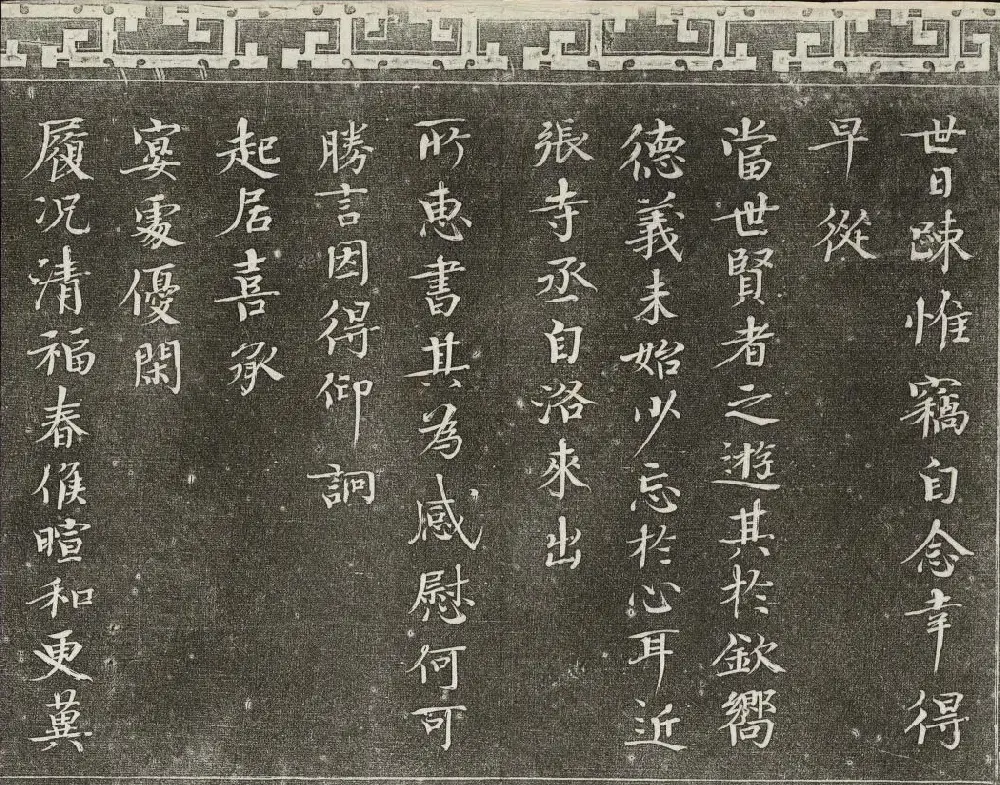 世日踈惟竊自念幸得
早從
當世賢者之遊其於欽嚮
德義未始少忘於心耳近
張寺丞自洛來出
所惠書其為感慰何可
勝言因得仰詗
起居喜承
宴處優閑
履况清福春候暄和更冀